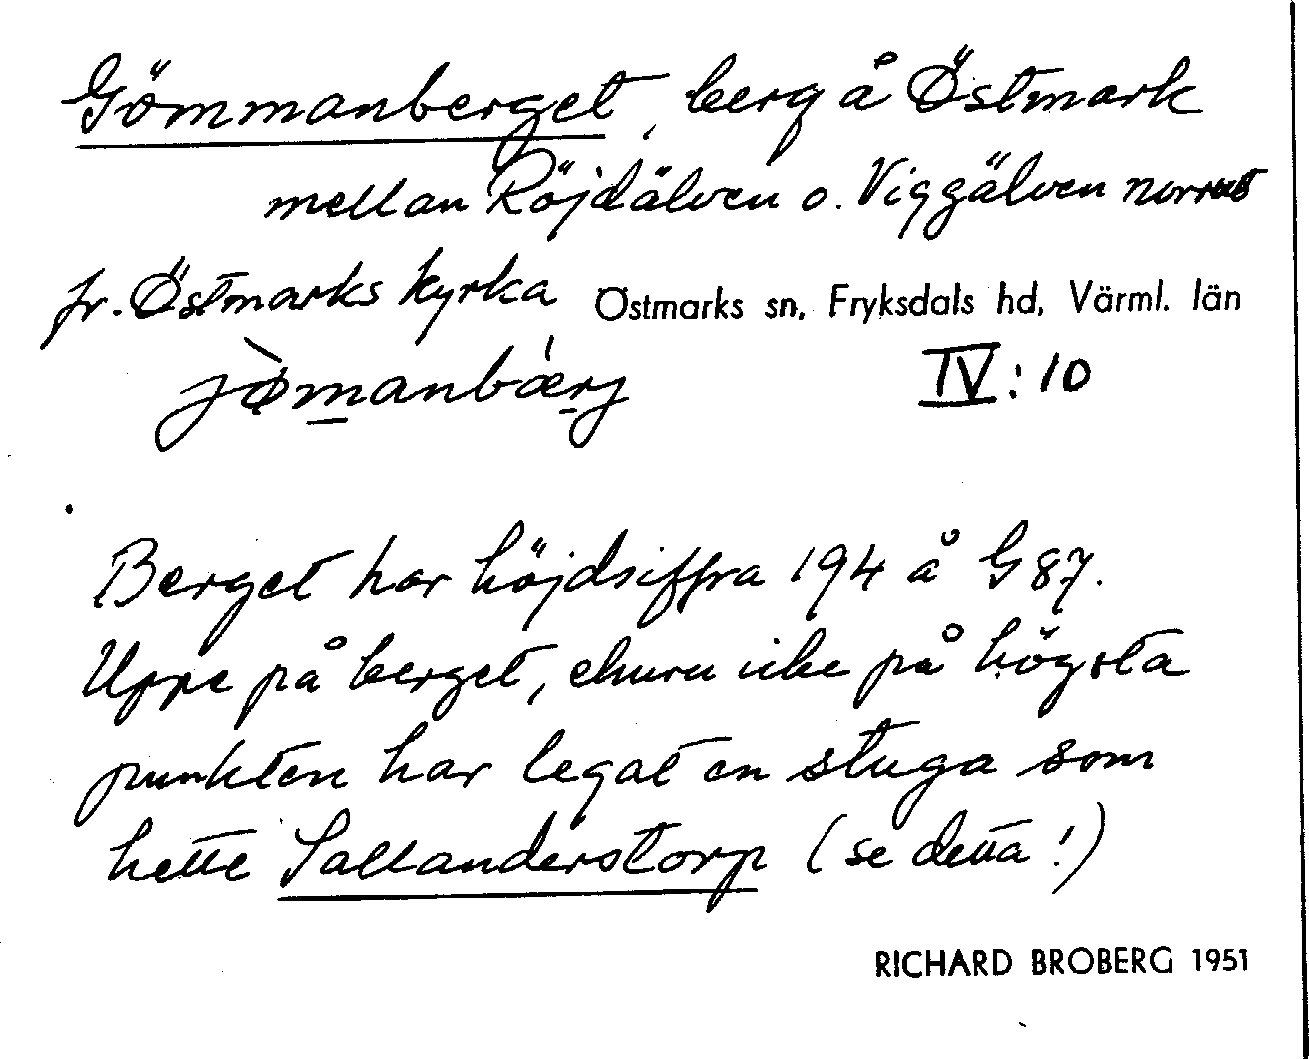 Gömmanberget, berg å Östmark
mellan Röjdälven o. Viggälven norrut
fr. Östmarks kyrka Östmarks sn, Fryksdals hd, Värml. län
jø̀manbǽrj IV:10
Berget har höjdsiffra 194 å G 87.
Uppe på berget, churu icke på högsta
punkten har legat en stuga som
hette Sallanderstorp (se detta!)
RICHARD BROBERG 1951